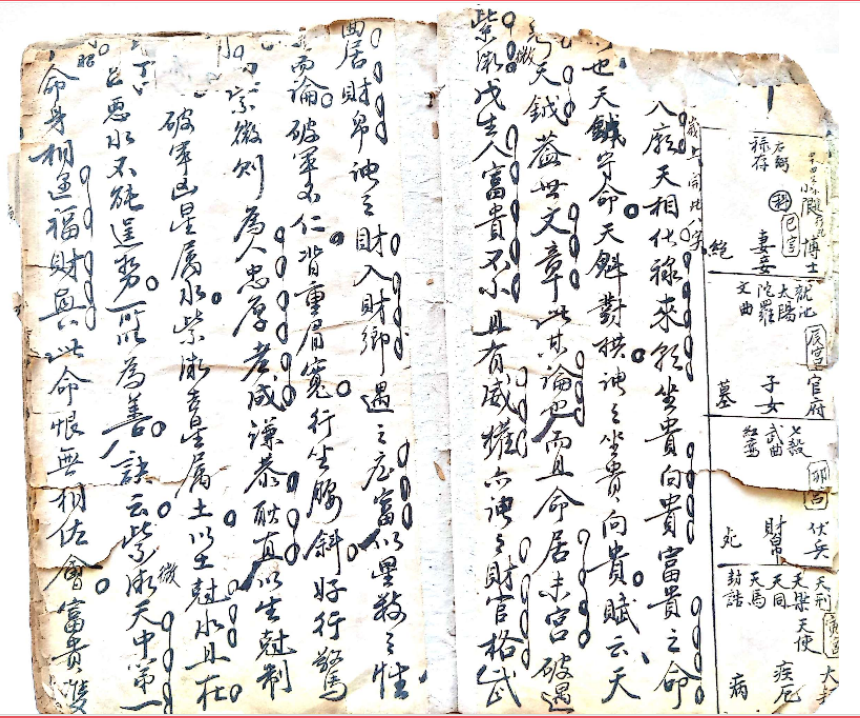 博士
小限
巳宮
右弼
祿存
科
妻妾
絕
龍池
太陽
陀羅
文曲
辰宮
官府
子女
墓
七殺
武曲
紅鸞
卯宮
伏兵
財帛
死
天刑
天梁
天使
天同
天馬
封誥
寅宮
疾厄
病
入廟天相化祿來朝坐貴向貴富貴之命
也天鉞守命天魁對拱謂之坐貴向貴賦云天
天鉞蓋世文章此其論也而且命居未宮破遇
紫微戊生人富貴不小且有威權亦謂之財官格武
曲居財帛謂之財入財鄉遇之応富以星教之性
而論破軍不仁背重眉寬行坐腰斜好行驚
紫微則為人忠厚老成謙恭耿直以生尅制
破軍凶星屬水紫微吉星屬土以土尅水且在
呂惡水不能逞势所以為善訣云紫微天中第一
命身相逢福財興此命恨無相佐會富貴雙